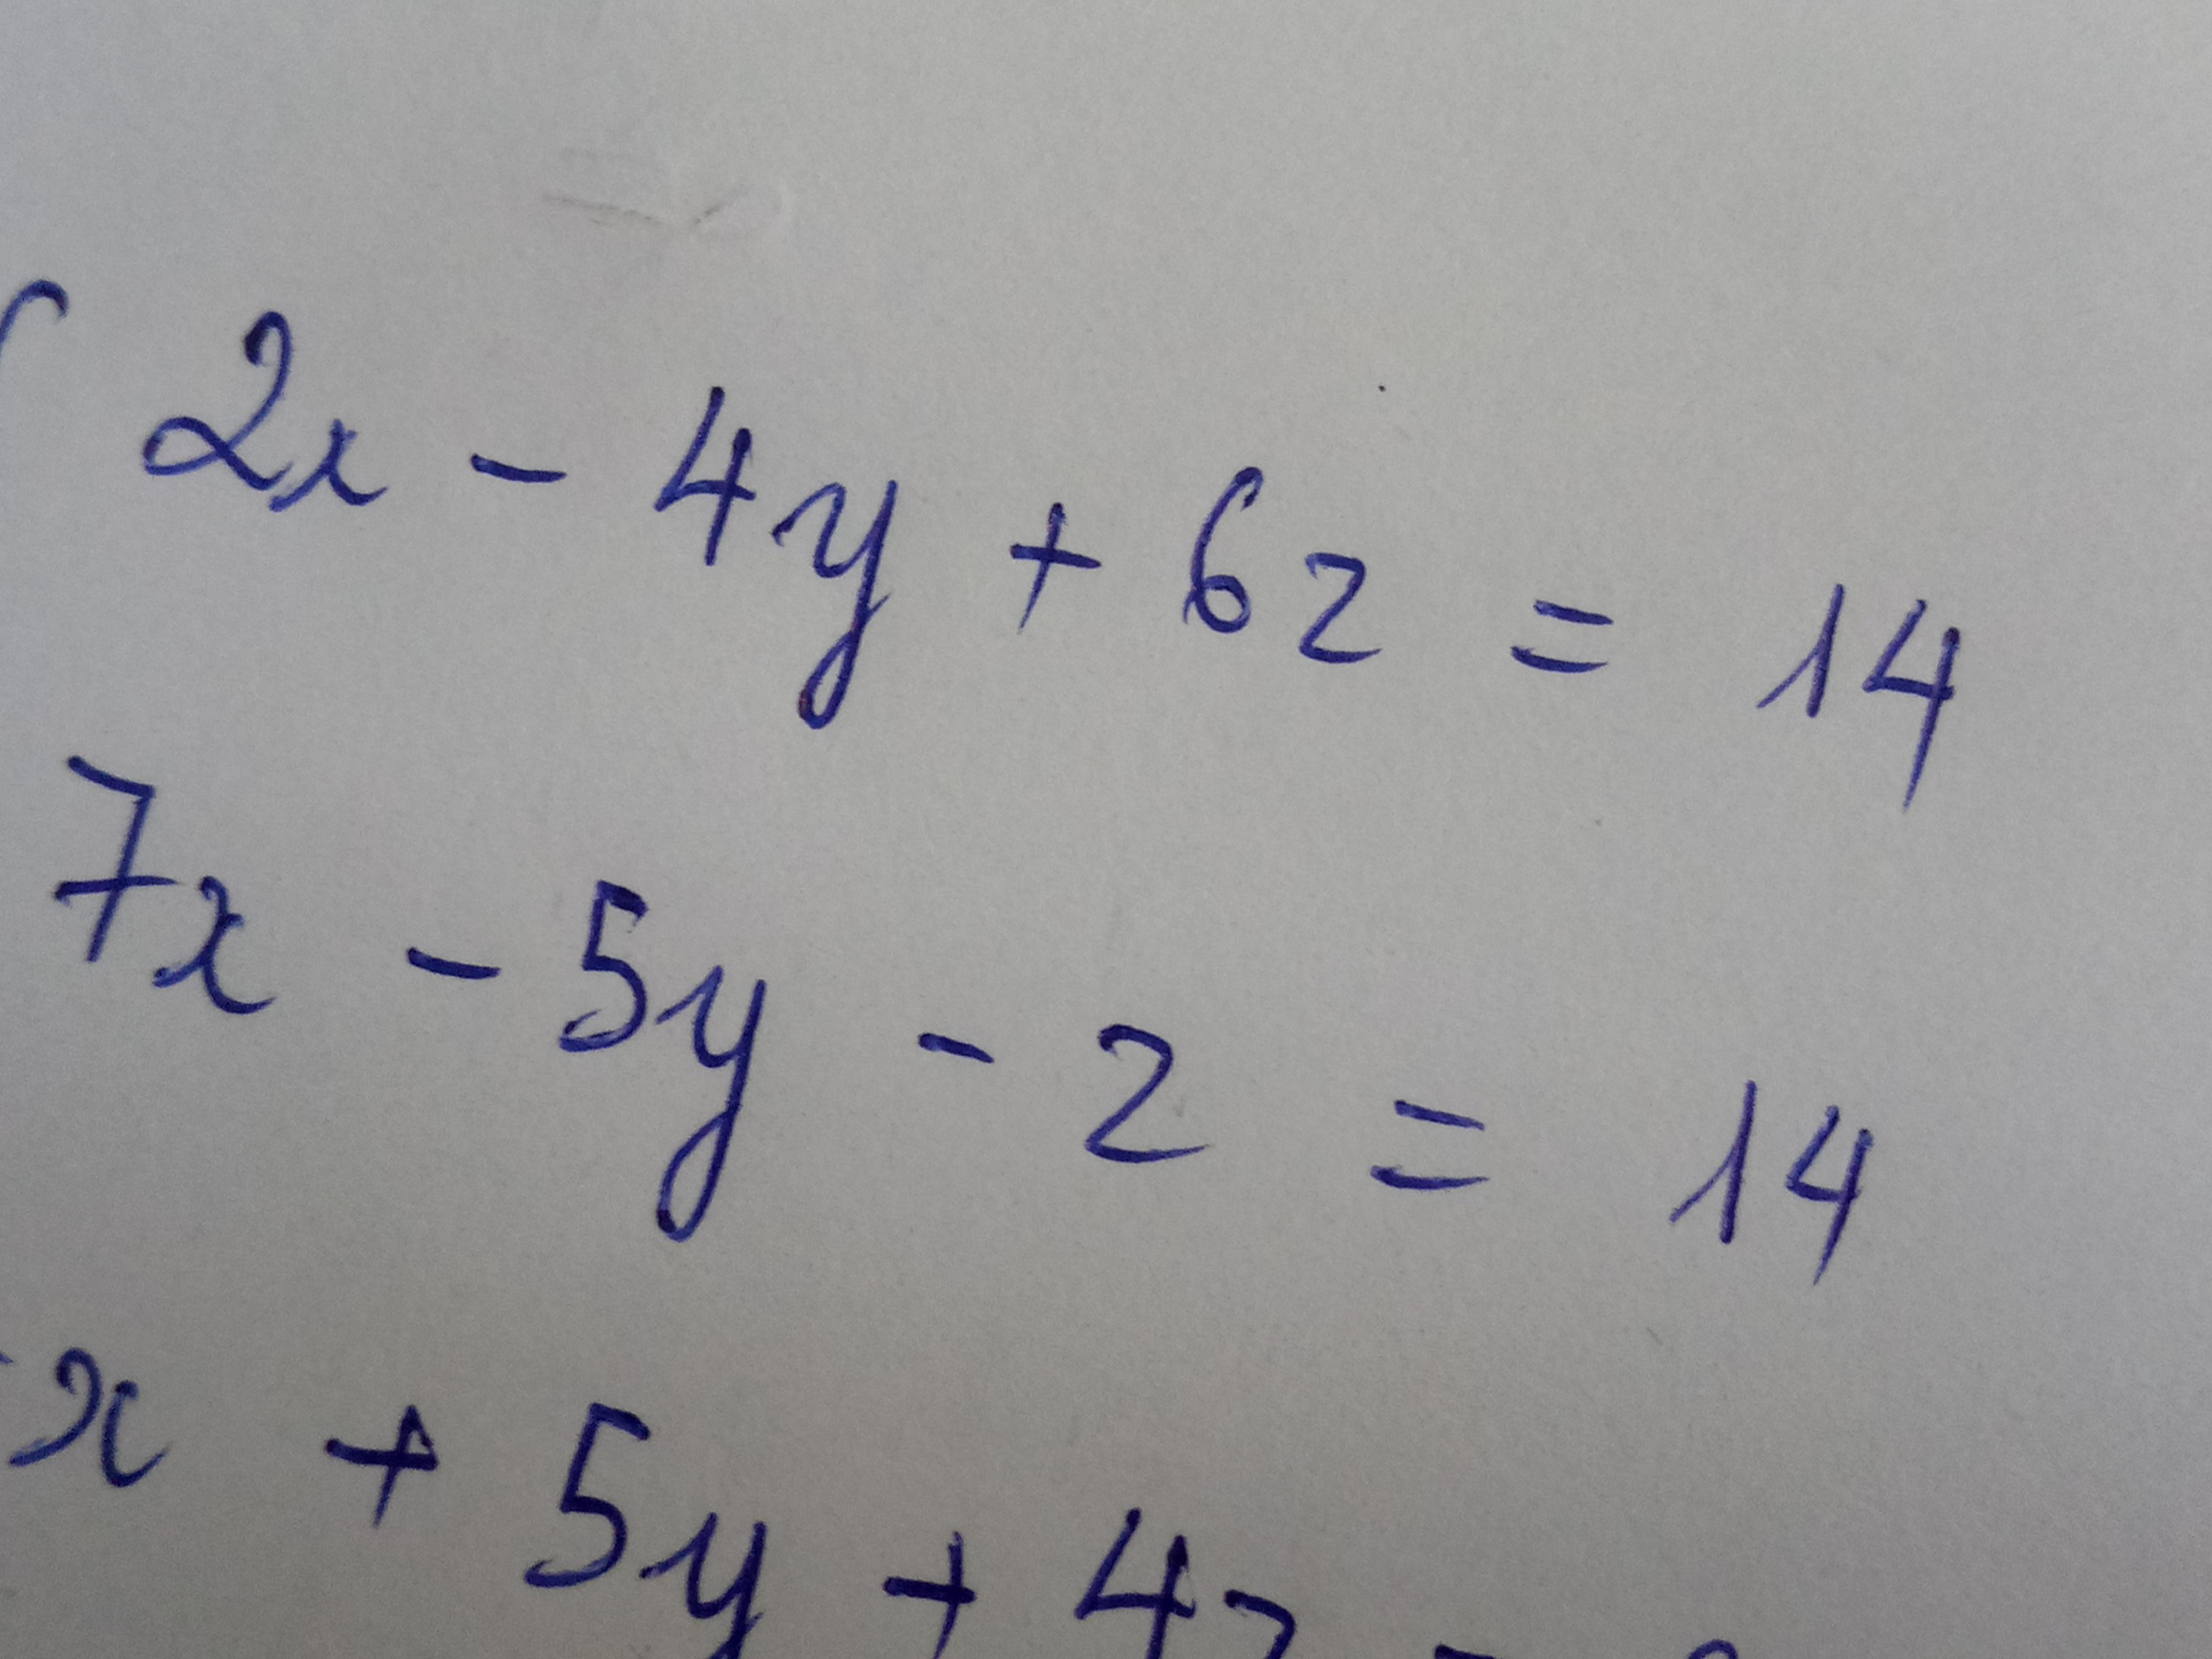 2x - 4y + 6z = 14
7x - 5y - z = 14
x + 5y + 4z =